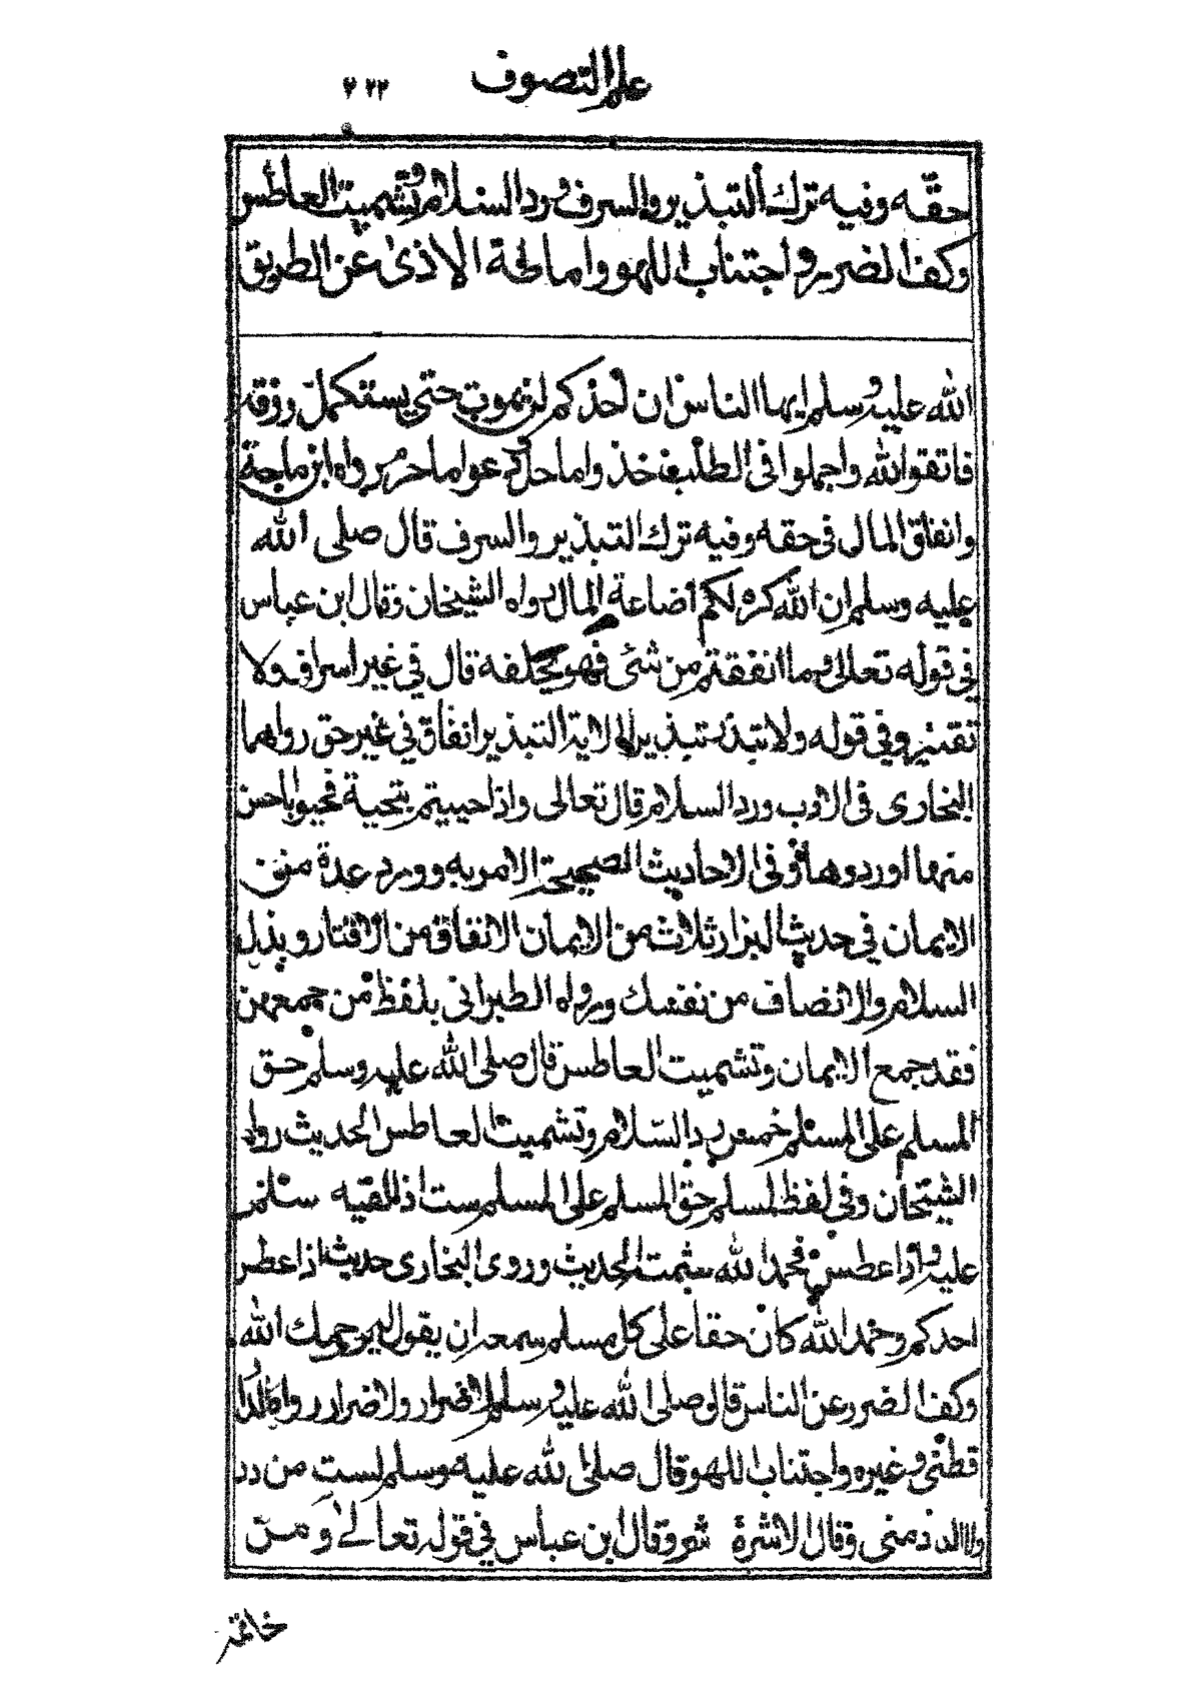 علم التصوف ٢٢٢
حقّه وفيه ترك التبذير والسرف ورد السلام وتشميت العاطس
وكف الضرر واجتناب اللهو واماطة الاذىٰ عن الطريق
الله عليه وسلم ايها الناس ان احدكم لن يموت حتى يستكمل رزقه
فاتقوا الله واجملوا فى الطلب خذوا ما حل ودعوا ما حرم رواه ابن ماجة
وانفاق المال فى حقه وفيه ترك التبذير والسرف قال صلى الله
عليه وسلم ان الله كره لكم اضاعة المال رواه الشيخان وقال ابن عباس
في قوله تعالى وما انفقتم من شئ فهو يخلفه قال في غير اسراف ولا
تقتير وفي قوله ولا تبذر تبذيرا الاية التبذير انفاق في غير حق رواهما
البخارى فى الادب ورد السلام قال تعالى واذا حييتم بتحية فحيوا باحسن
منها او ردوها وفى الاحاديث الصحيحة الامر به وورد عدة من
الايمان في حديث البزار ثلاث من الايمان الانفاق من الاقتار وبذل
السلام والانصاف من نفسك ورواه الطبرانى بلفظ من جمعهن
فقد جمع الايمان وتشميت العاطس قال صلى الله عليه وسلم حق
المسلم على المسلم خمس رد السّلام وتشميت العاطس الحديث رواه
الشيخان وفى لفظ لمسلم حق المسلم على المسلم ست اذا لقيه سلم
عليه واذا عطس فحمد الله شمته الحديث وروى البخارى حديث اذا عطس
احدكم وحمد الله كان حقا على كل مسلم سمعه ان يقول يرحمك الله
وكف الضرر عن الناس قال صلى الله عليه وسلم لا ضرر ولا ضرار رواه الدا
قطنى وغيره واجتناب اللهو قال صلى الله عليه وسلم لست من دد
ولا الدد منى وقال الاشرة شر وقال ابن عباس في قوله تعالىٰ ومن
خاتمہ